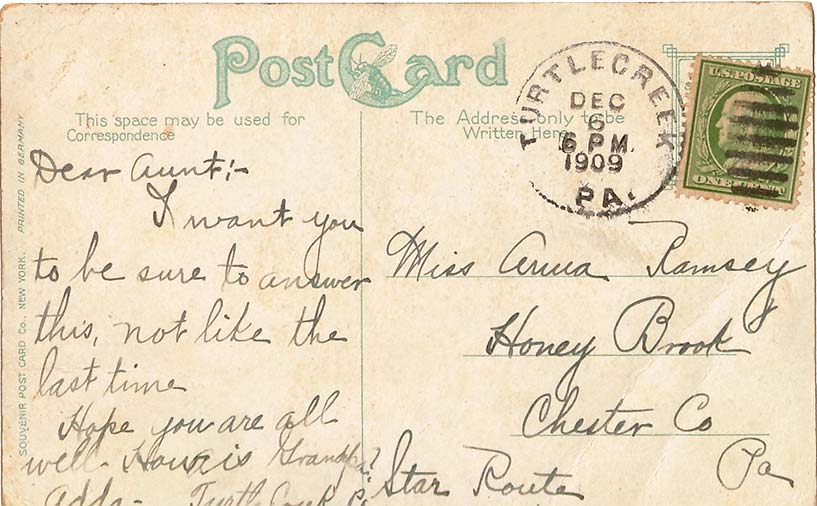 Post Card
This space may be used for
Correspondence
The Address only to be
Written Here
TURTLECREEK
DEC
6
6 P.M.
1909
PA.
U.S. POSTAGE
ONE
SOUVENIR POST CARD Co., NEW YORK. PRINTED IN GERMANY
Dear Aunt:-
I want you
to be sure to answer
this, not like the
last time
Hope you are all
well. How is Grandpa?
Adds- Turtle Creek
Miss Anna Ramsey
Honey Brook
Chester Co
Pa
Star Route